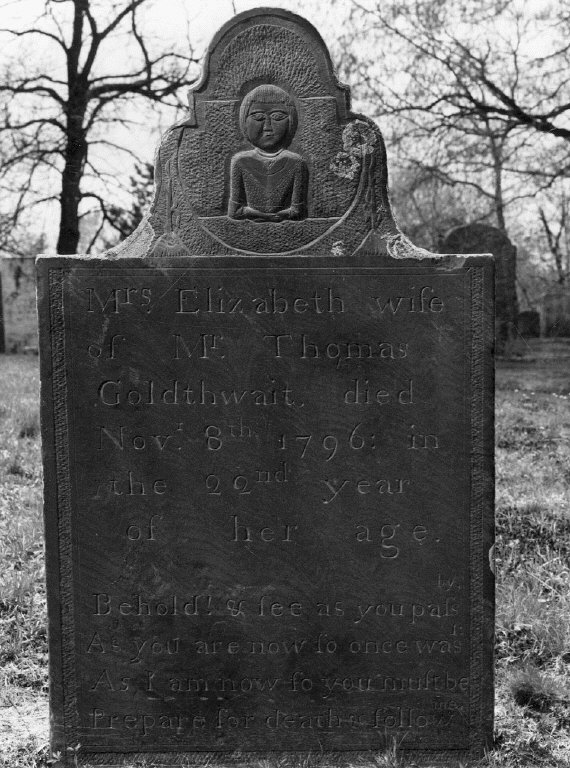 Mrs Elizabeth wife
of Mr. Thomas
Goldthwait, died
Novr. 8th 1796: in
the 22nd year
of her age.
Behold! & ſee as you paſs by,
As you are now ſo once was I:
As I am now ſo you muſt be
Prepare for death & follow me.